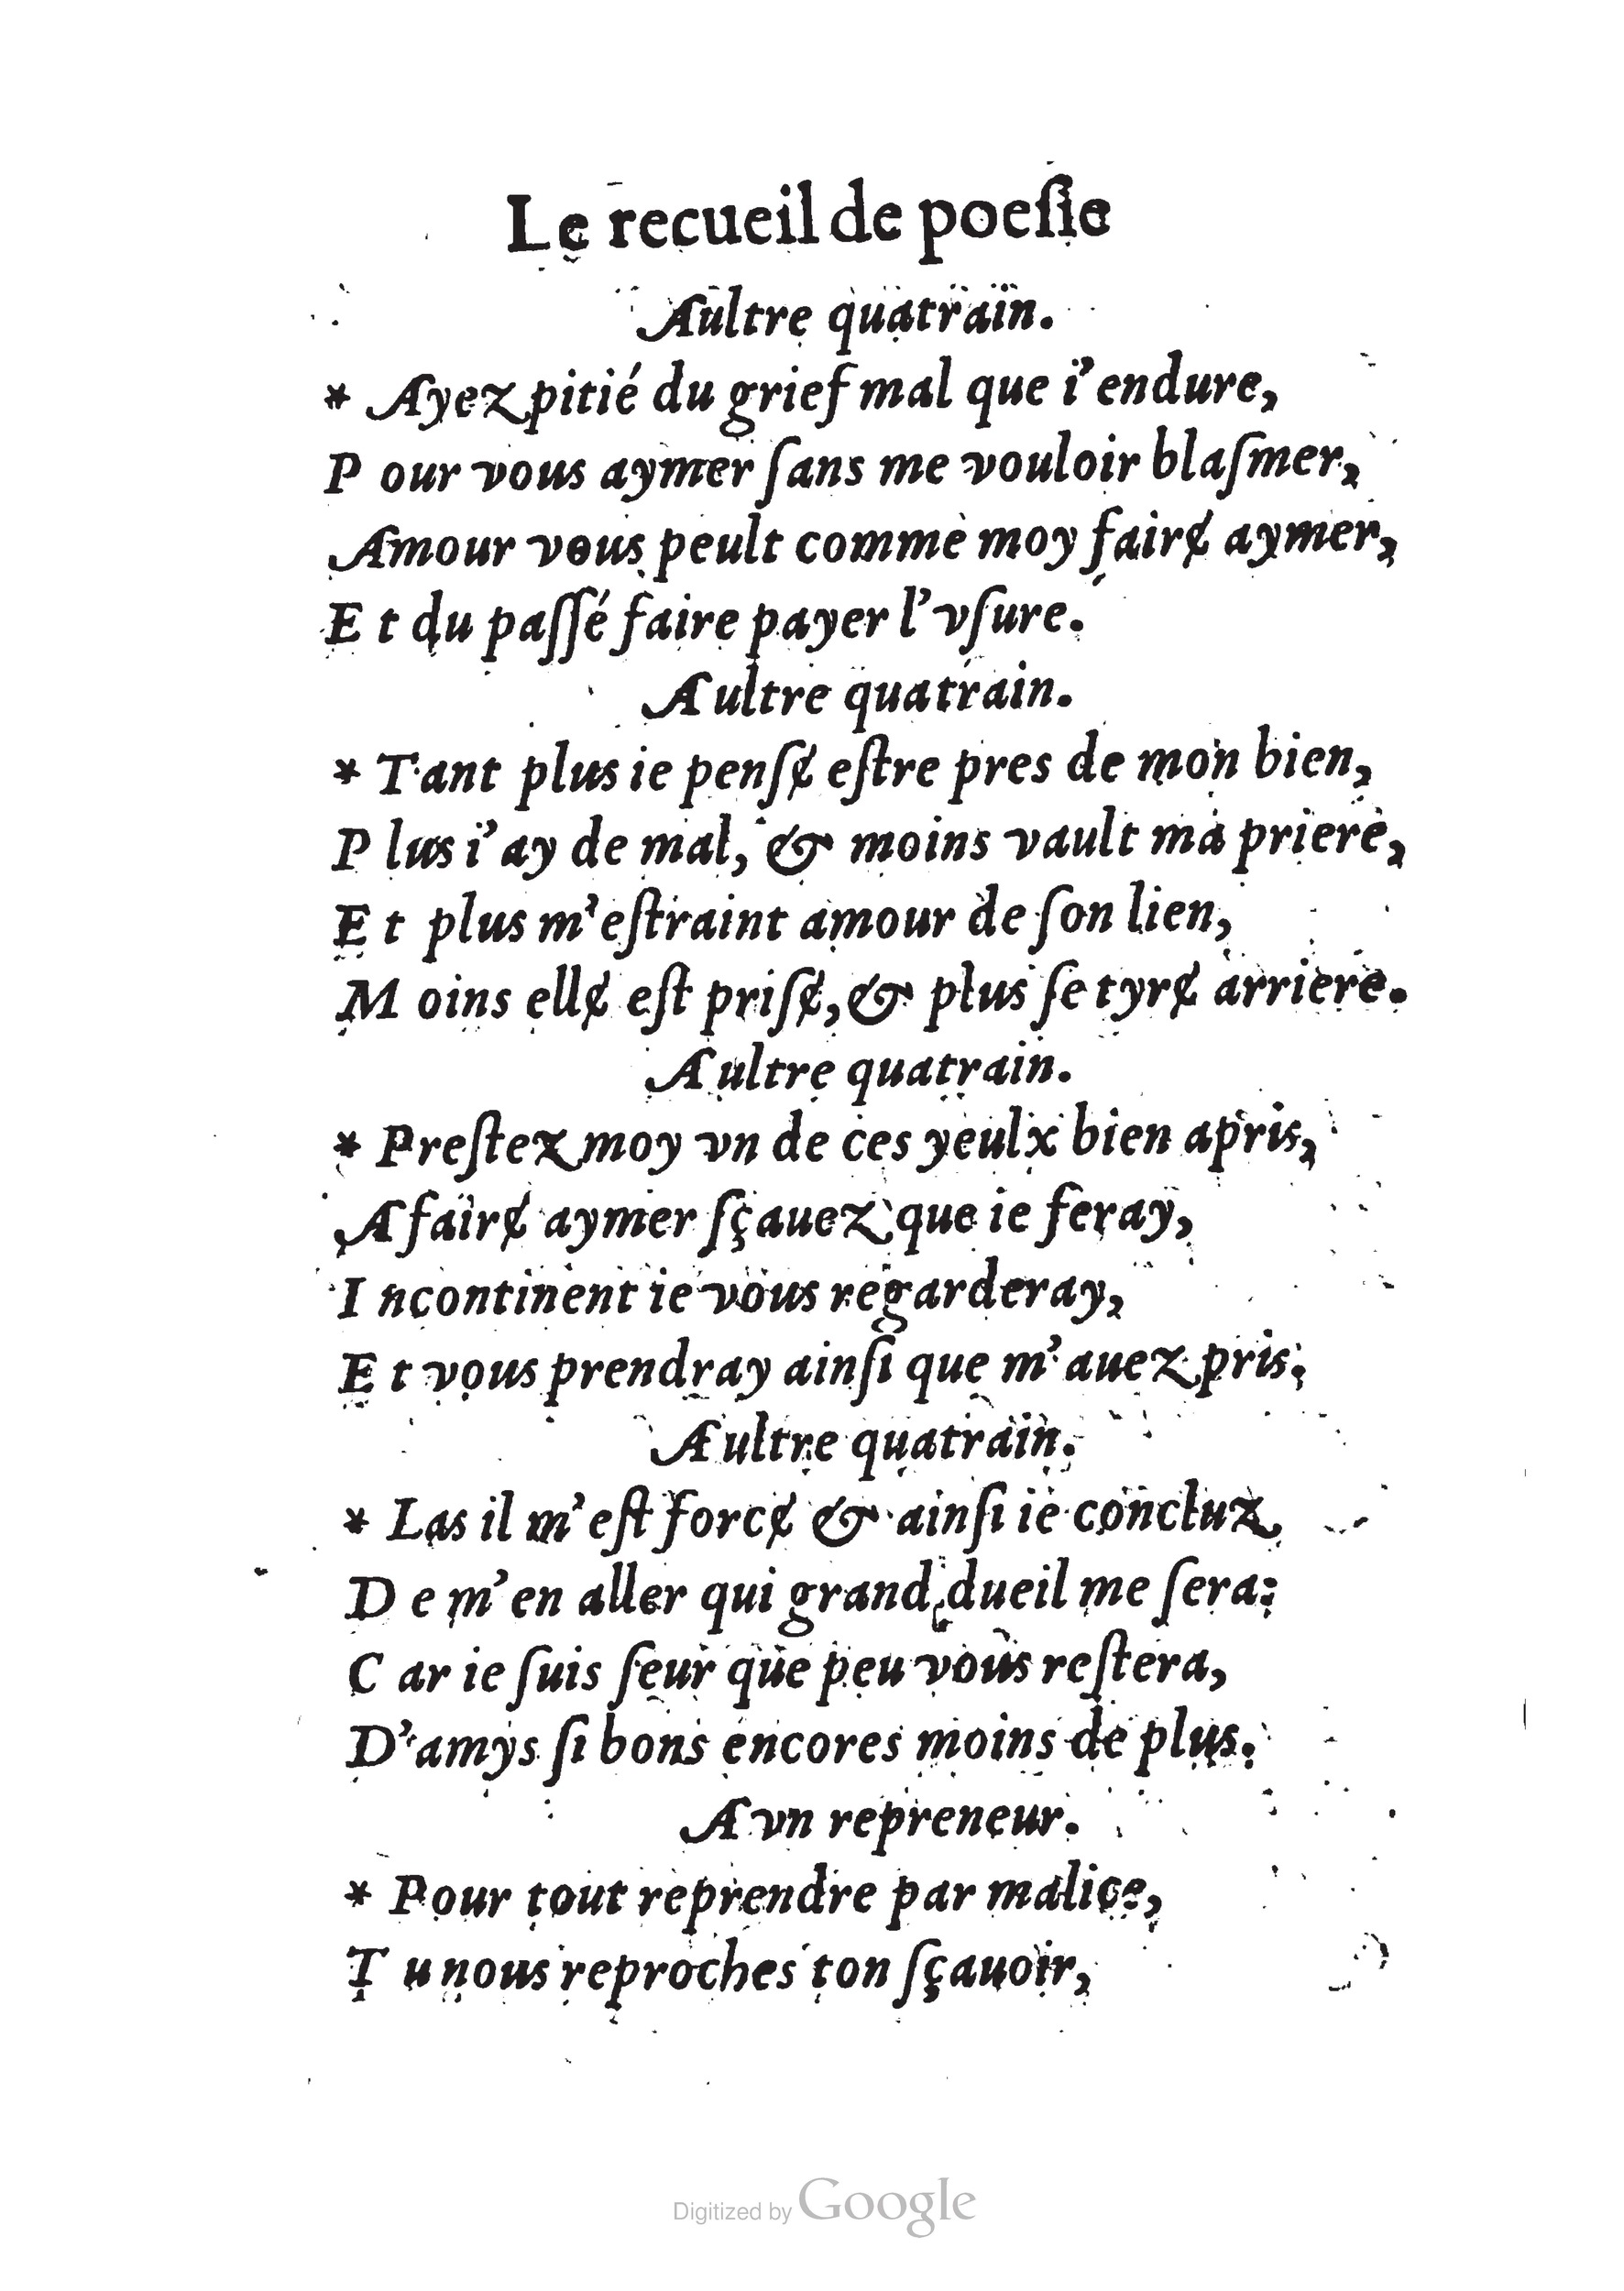 Le recueil de poeſie
Aultre quatrain.
* Ayez pitié du grief mal que i'endure,
P our vous aymer ſans me vouloir blaſmer,
Amour vous peult comme moy fairɇ aymer,
E t du paſſé faire payer l'vſure.
Aultre quatrain.
* Tant plus ie penſɇ eſtre pres de mon bien,
P lus i'ay de mal, & moins vault ma priere,
E t plus m'eſtraint amour de ſon lien,
M oins ellɇ eſt priſɇ, & plus ſe tyrɇ arriere.
Aultre quatrain.
* Preſtez moy vn de ces yeulx bien apris,
A fairɇ aymer ſçauez que ie feray,
I ncontinent ie vous regarderay,
E t vous prendray ainſi que m'auez pris.
Aultre quatrain.
* Las il m'eſt forcɇ & ainſi ie concluz,
D e m'en aller qui grand dueil me ſera:
C ar ie ſuis ſeur que peu vous reſtera,
D'amys ſi bons encores moins de plus.
A vn repreneur.
* Pour tout reprendre par malice,
T u nous reproches ton ſçauoir,
Digitized by Google